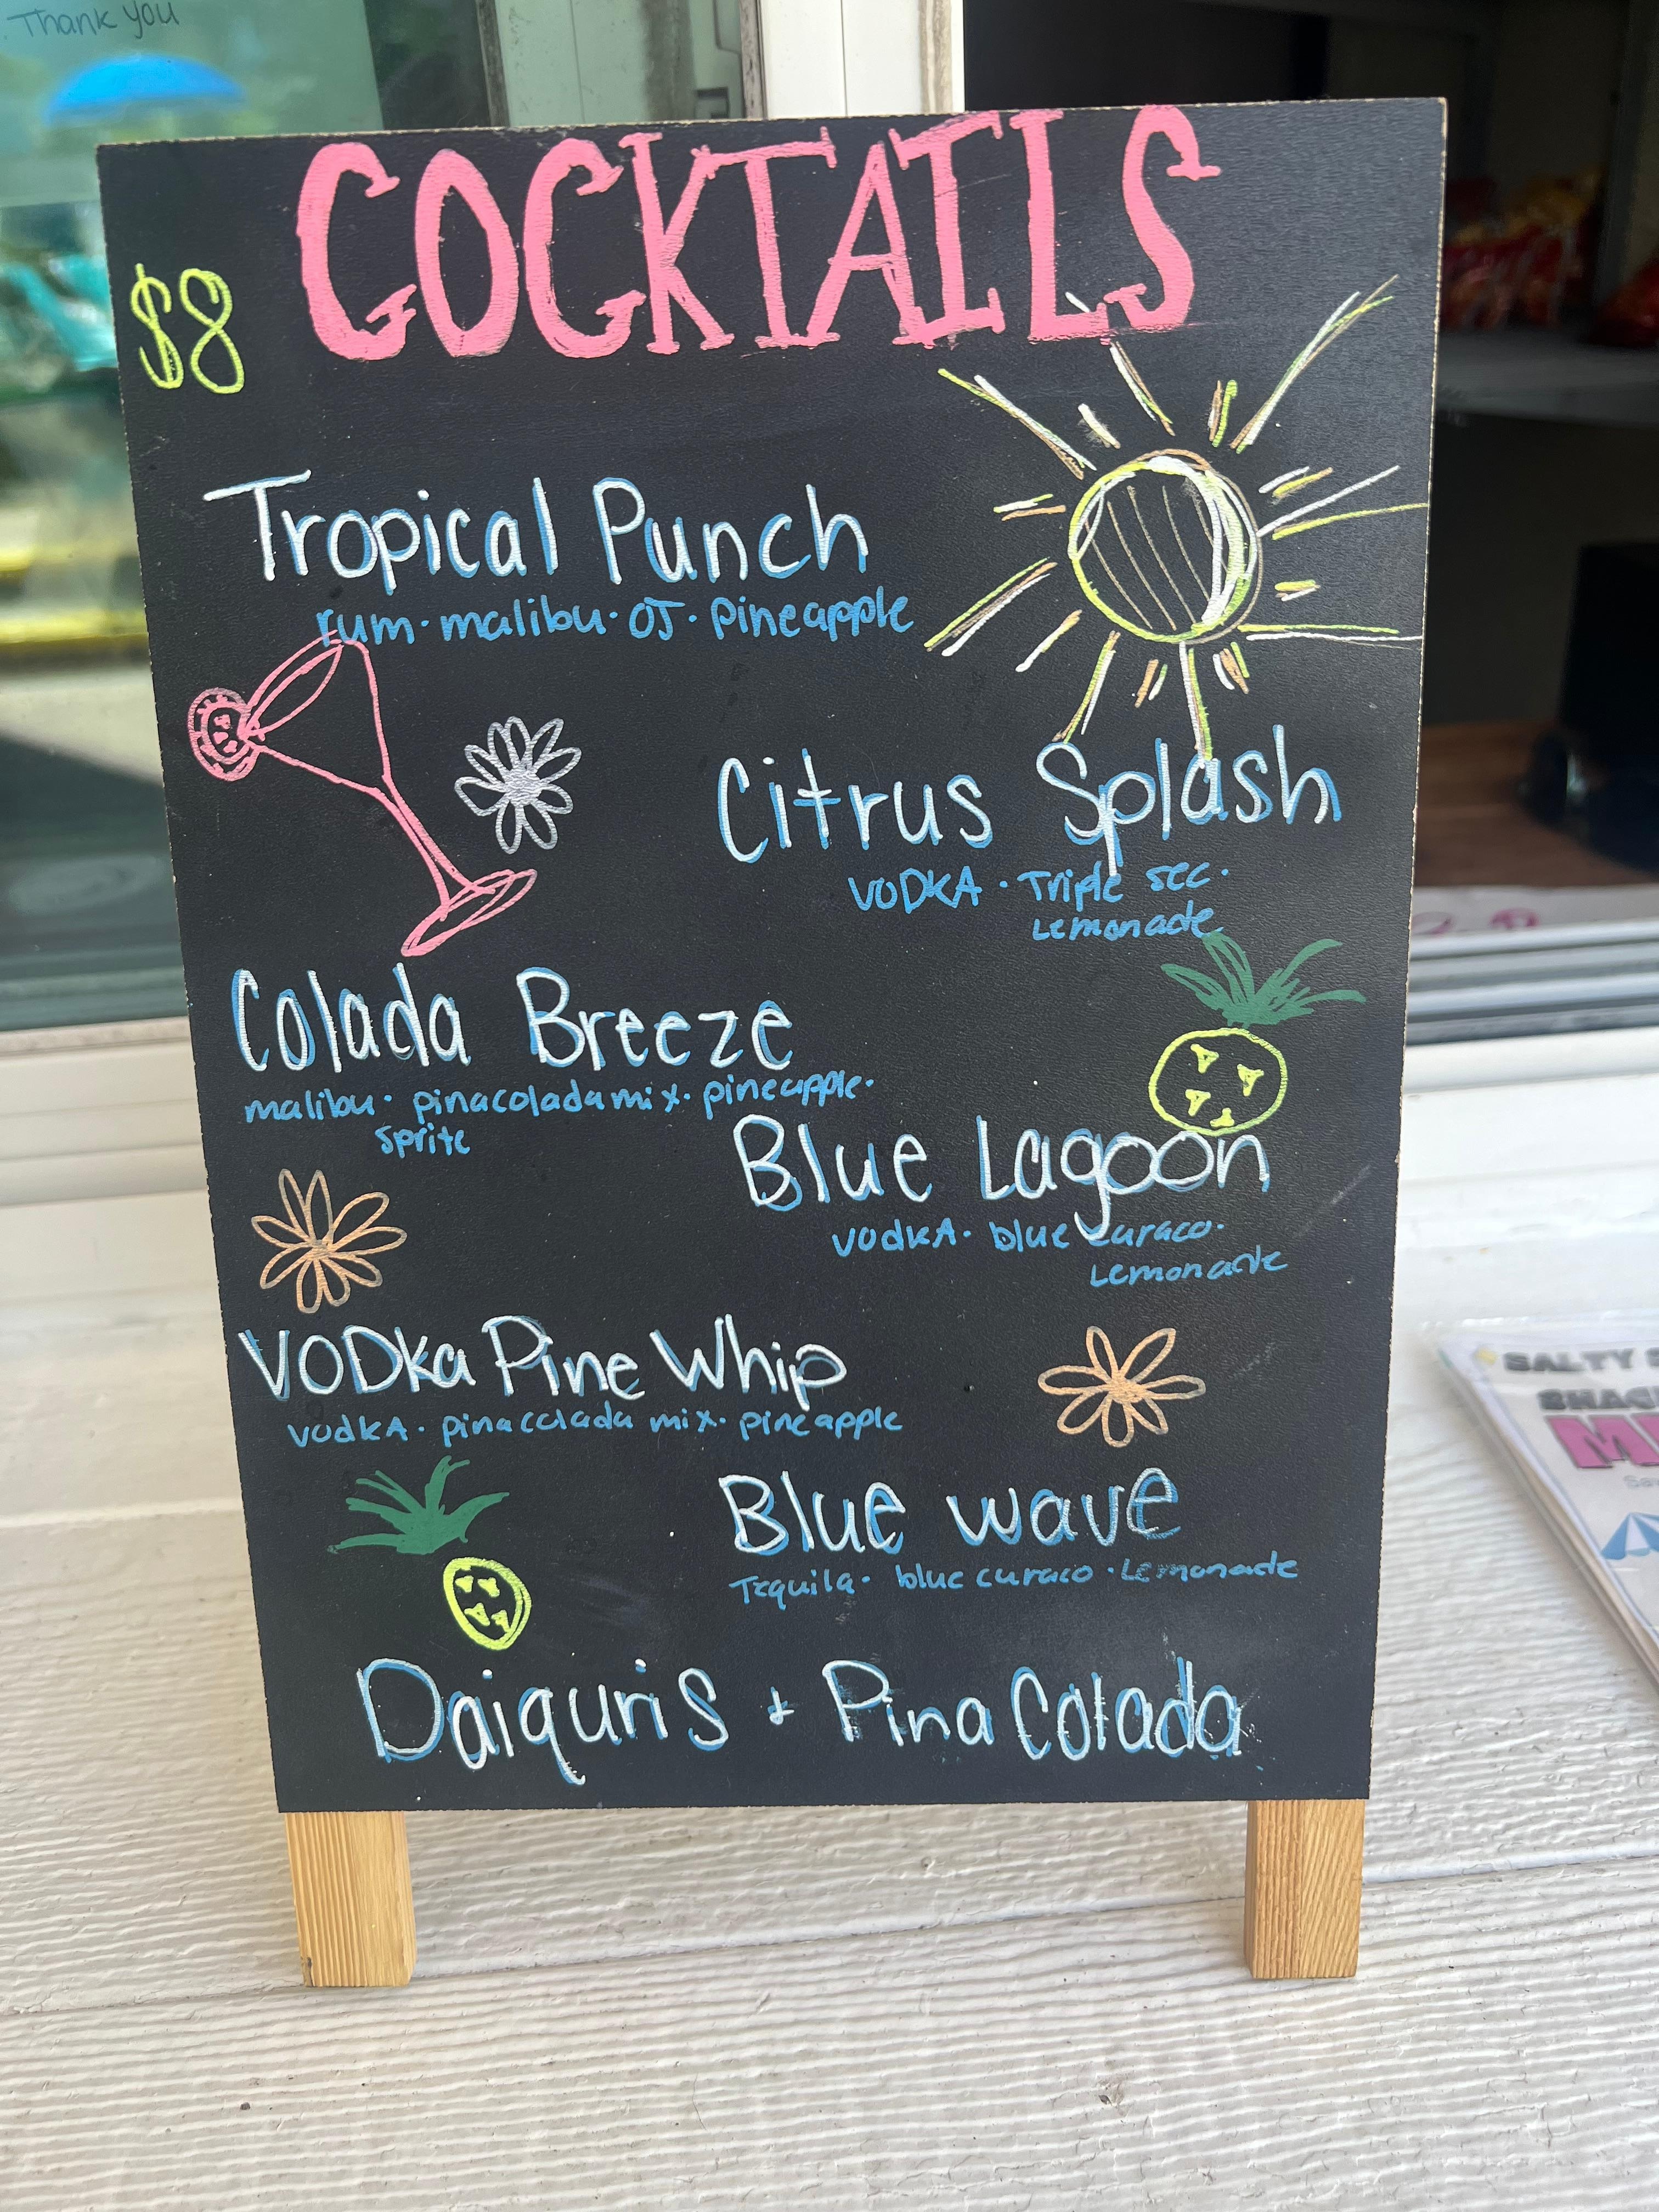 Thank you
COCKTAILS
$8
Tropical Punch
rum · malibu · OJ · pineapple
Citrus Splash
VODKA · Triple sec ·
Lemonade
Colada Breeze
malibu · pinacolada mix · pineapple ·
sprite
Blue Lagoon
vodkA · blue curaco ·
Lemonade
VODka Pine Whip
vodkA · pinacolada mix · pineapple
Blue wave
Tequila · blue curaco · Lemonade
Daiquris + Pina Colada
SALTY